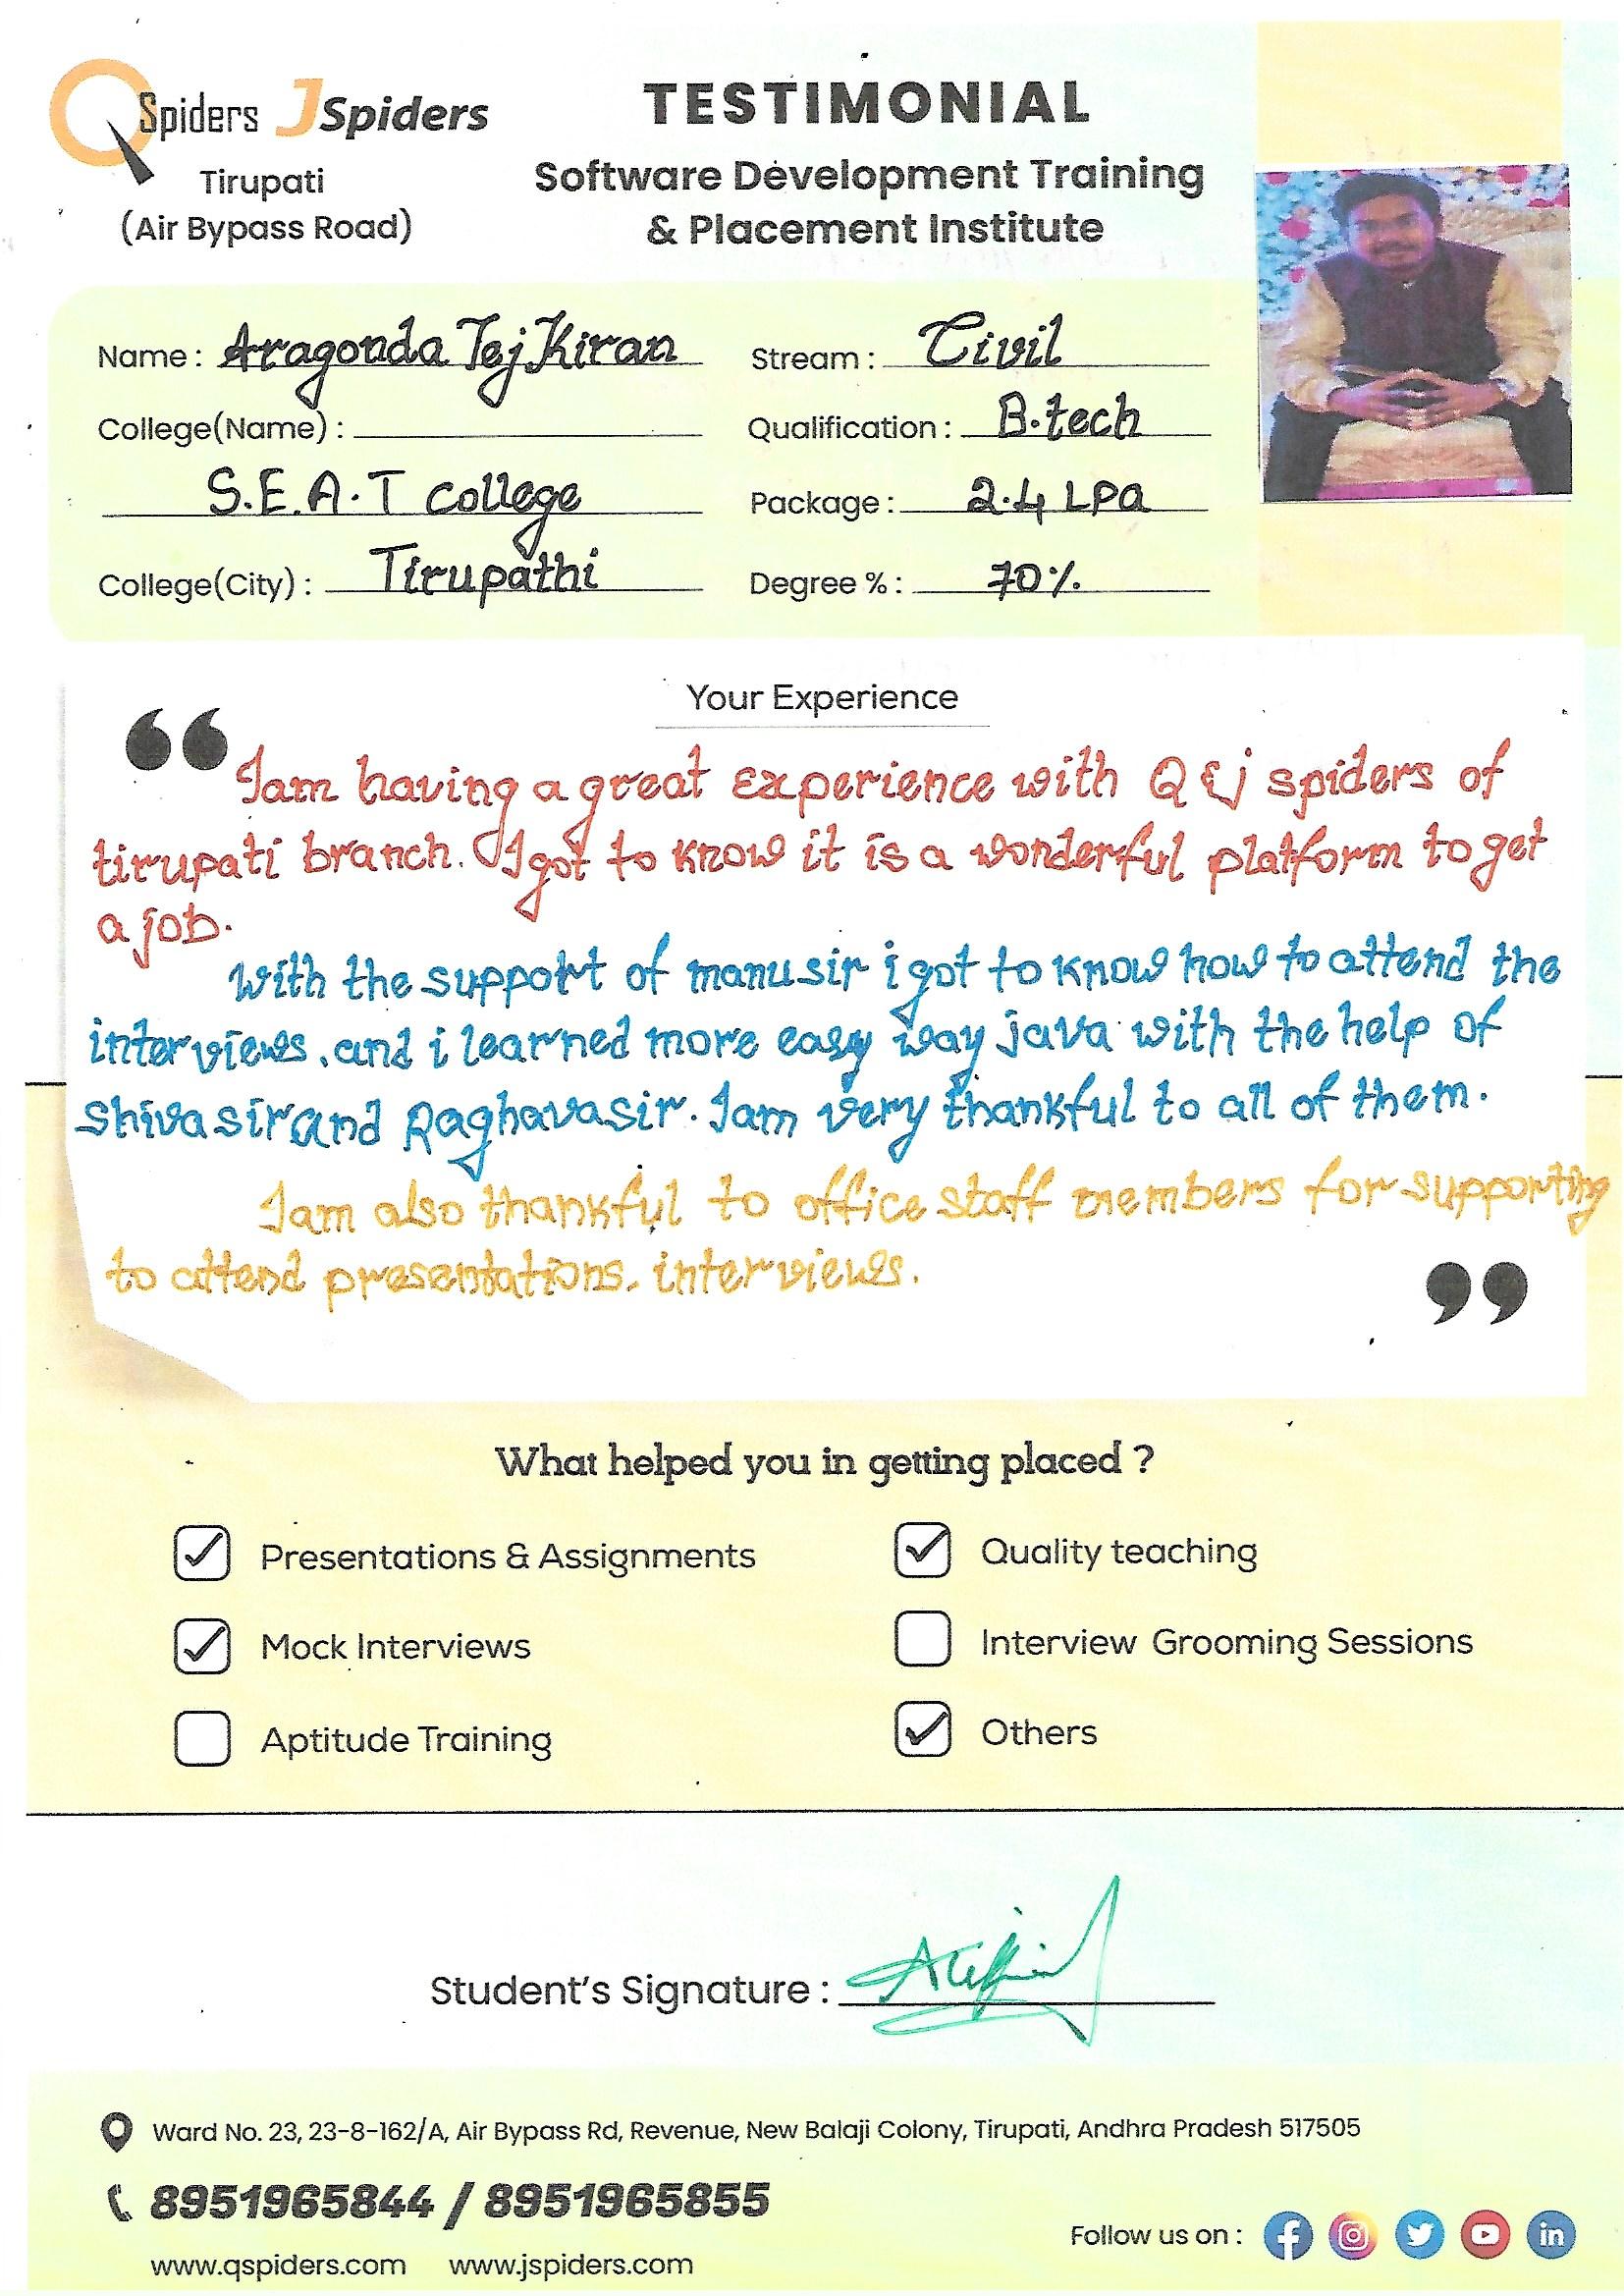 QSpiders JSpiders
Tirupati
(Air Bypass Road)
TESTIMONIAL
Software Development Training
& Placement Institute
Name : Aragonda Tej Kiran
Stream : Civil
College(Name) :
Qualification : B.tech
S.E.A.T college
Package : 2.4 LPa
College(City) : Tirupathi
Degree % : 70%
Your Experience
“ Iam having a great Experience with Q & j spiders of
tirupati branch. I got to know it is a wonderful platform to get
a job.
With the support of manu sir i got to know how to attend the
interviews. and i learned more easy way java with the help of
Shiva sir and Raghava sir. Iam very thankful to all of them.
Iam also thankful to office staff members for supporting
to attend presentations. interviews. ”
What helped you in getting placed ?
Presentations & Assignments
Quality teaching
Mock Interviews
Interview Grooming Sessions
Aptitude Training
Others
Student's Signature :
Ward No. 23, 23-8-162/A, Air Bypass Rd, Revenue, New Balaji Colony, Tirupati, Andhra Pradesh 517505
8951965844 / 8951965855
Follow us on :
www.qspiders.com www.jspiders.com